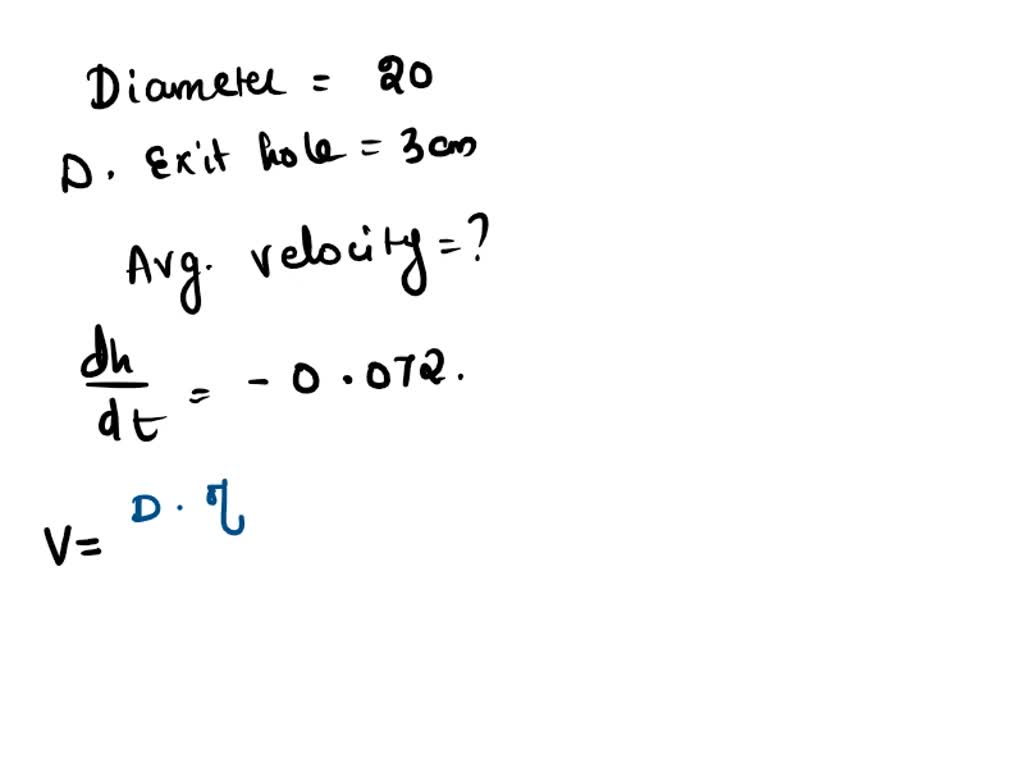 Diameter = 20
D. Exit hole = 3cm
Avg. velocity = ?
dh
dt = - 0.072.
D. η
V =